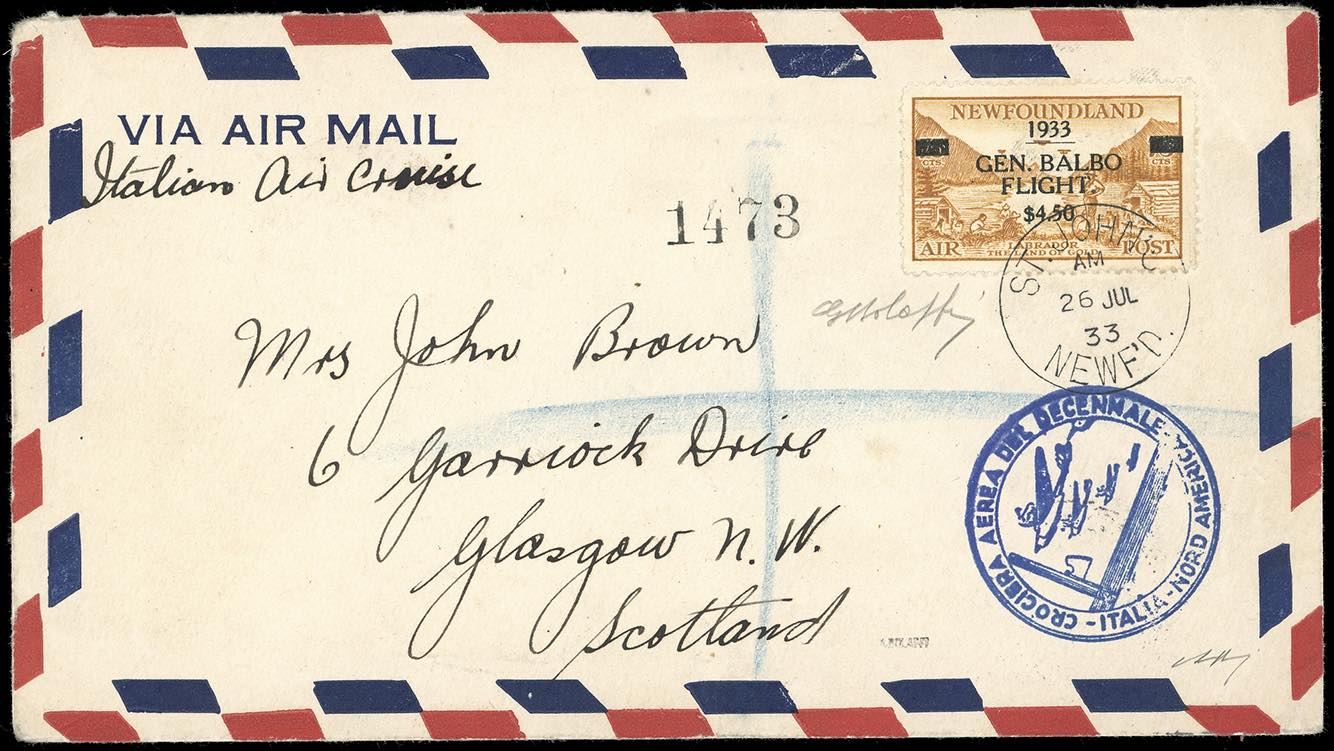 VIA AIR MAIL
Italian Air Cruise
1473
NEWFOUNDLAND
1933
CTS. CTS.
GEN. BALBO
FLIGHT.
$4.50
LABRADOR
AIR THE LAND OF GOLD POST
ST. JOHN'S
AM
26 JUL
33
NEWF'D.
Mrs John Brown
6 Garriock Drive
Glasgow N.W.
Scotland
CROCIERA AEREA DEL DECENNALE - ITALIA - NORD AMERICA